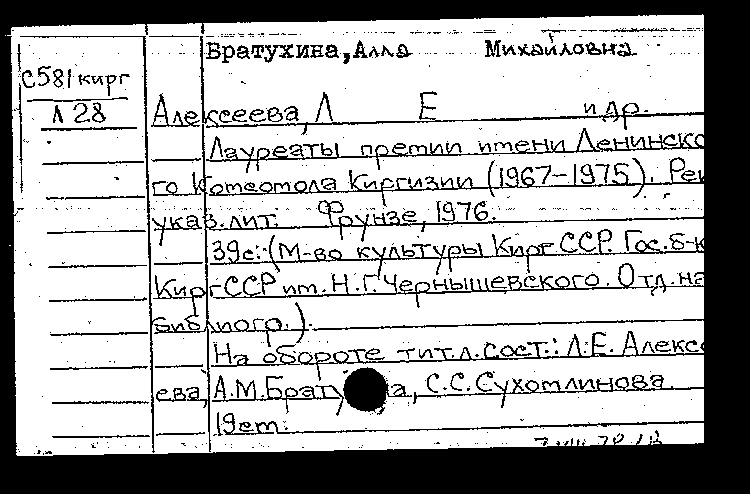 Братухина, Алла Михайловна
С581кирг
Л 28
Алексеева, Л Е и др.
Лауреаты премии имени Ленинско
го Комсомола Киргизии (1967-1975). Рек
указ. лит. Фрунзе, 1976.
39с.: (М-во культуры Кирг ССР. Гос. б-к
Кирг ССР им. Н.Г. Чернышевского. Отд. на
библиогр.).
На обороте тит. л. сост.: Л.Е. Алексе
ева, А.М. Брату а, С.С. Сухотлинова.
19ет.